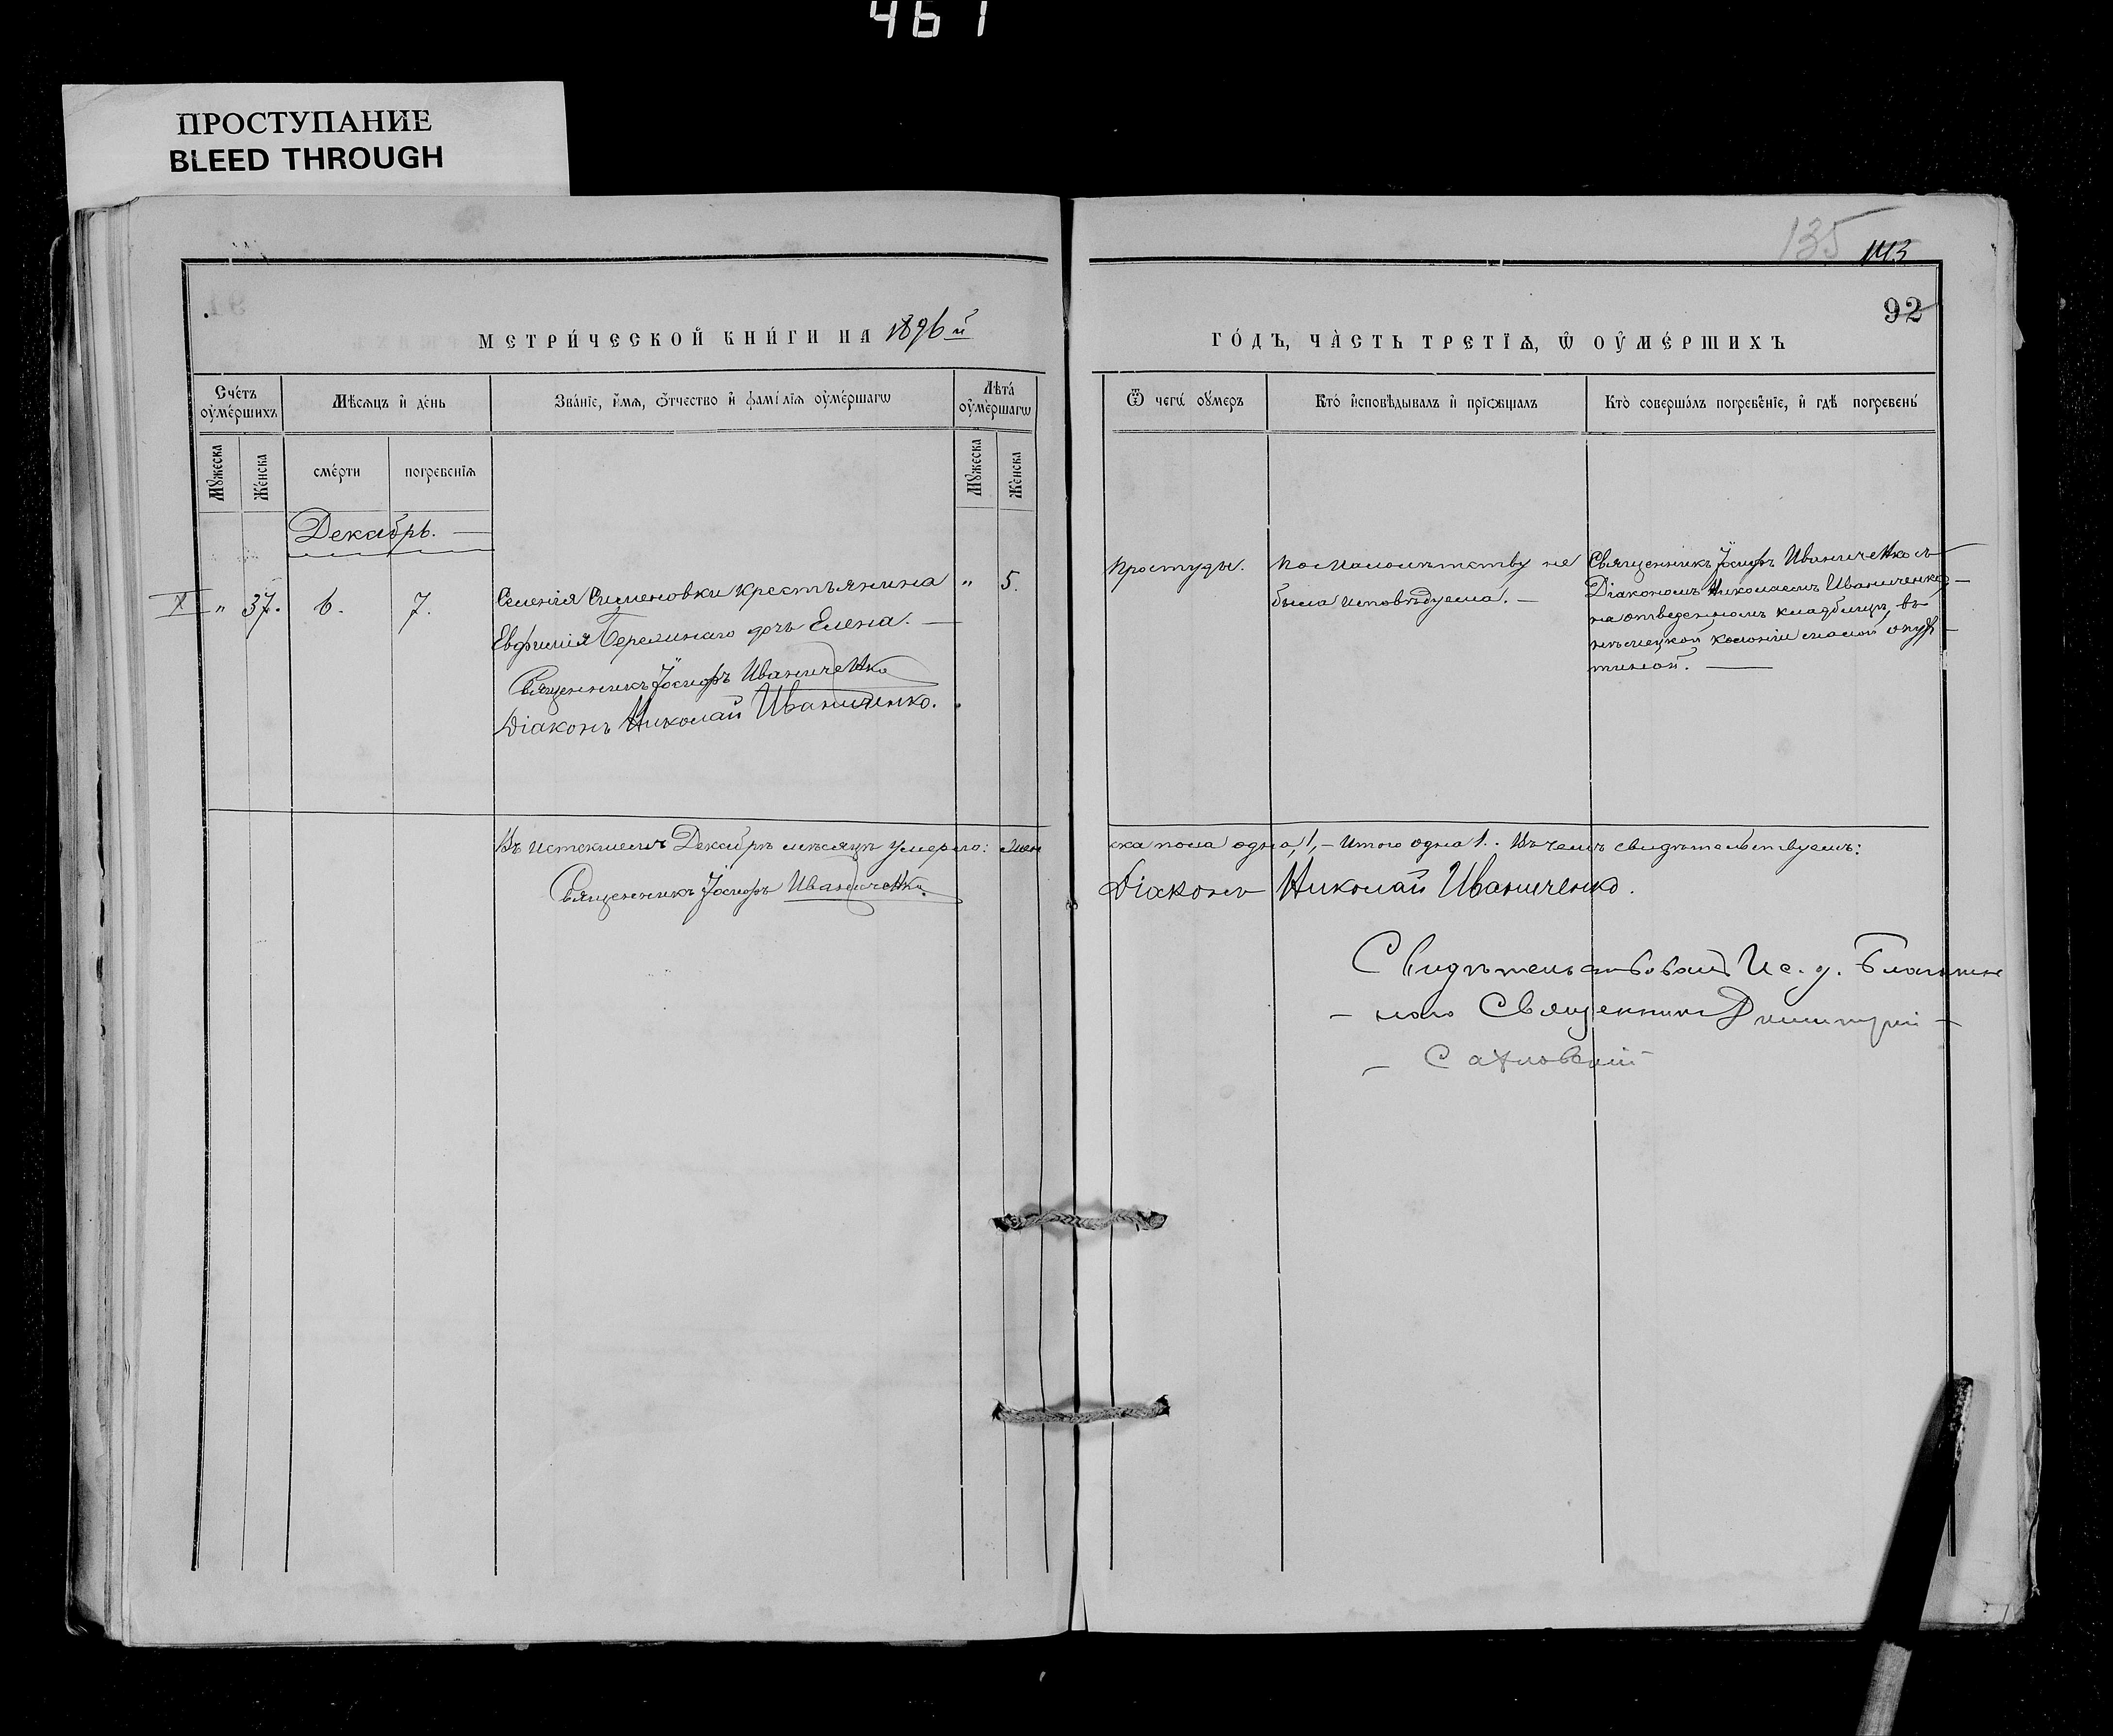 461
ПРОСТУПАНИЕ
BLEED THROUGH
135 143
92
МЕТРИ́ЧЕСКОЙ КНИ́ГИ НА 1896й
ГО́ДЪ, ЧА̀СТЬ ТРЕТЇѦ, Ѡ ОУ҆МЕ́РШИХЪ
Сче́тъ оу҆ме́ршихъ
Мѣ́сѧцъ и҆ де́нь
Зва́нїе, и҆́мѧ, ѻ҆́тчество и҆ фамі́лїѧ оу҆ме́ршагѡ
Лѣта́ оу҆ме́ршагѡ
Ѿ чегѡ̀ оу҆́меръ
Кто̀ и҆сповѣ́дывалъ и҆ прїѡбща́лъ
Кто̀ соверша́лъ погребе́нїе, и҆ гдѣ̀ погребены̀
Мꙋ́жеска
Же́нска
сме́рти
погребенїѧ
Мꙋ́жеска
Же́нска
Декабрь. —
" 37. 6. 7.
Селенія Сименовки крестьянина " 5.
Евфимія дочь Елена. —
Священникъ Іосифъ Иваниченко
Діаконъ Николай Иваниченко.
Простуды.
По малолѣтству не
была исповѣдуема. —
Священникъ Іосифъ Иваниченко съ
Діакономъ Николаемъ Иваниченко, —
на отведенномъ кладбищѣ, въ
нѣмецкой колоніи малой
тиной. —
Въ истекшемъ Декабрѣ мѣсяцѣ умерло: жен
ска пола одна, 1, — Итого одна 1. Въ чемъ свидѣтельствуемъ:
Священникъ Іосифъ Иваниченко.
Діаконъ Николай Иваниченко.
Свидѣтельствовалъ И с. д. Благочин
— наго Священникъ Димитрій —
—